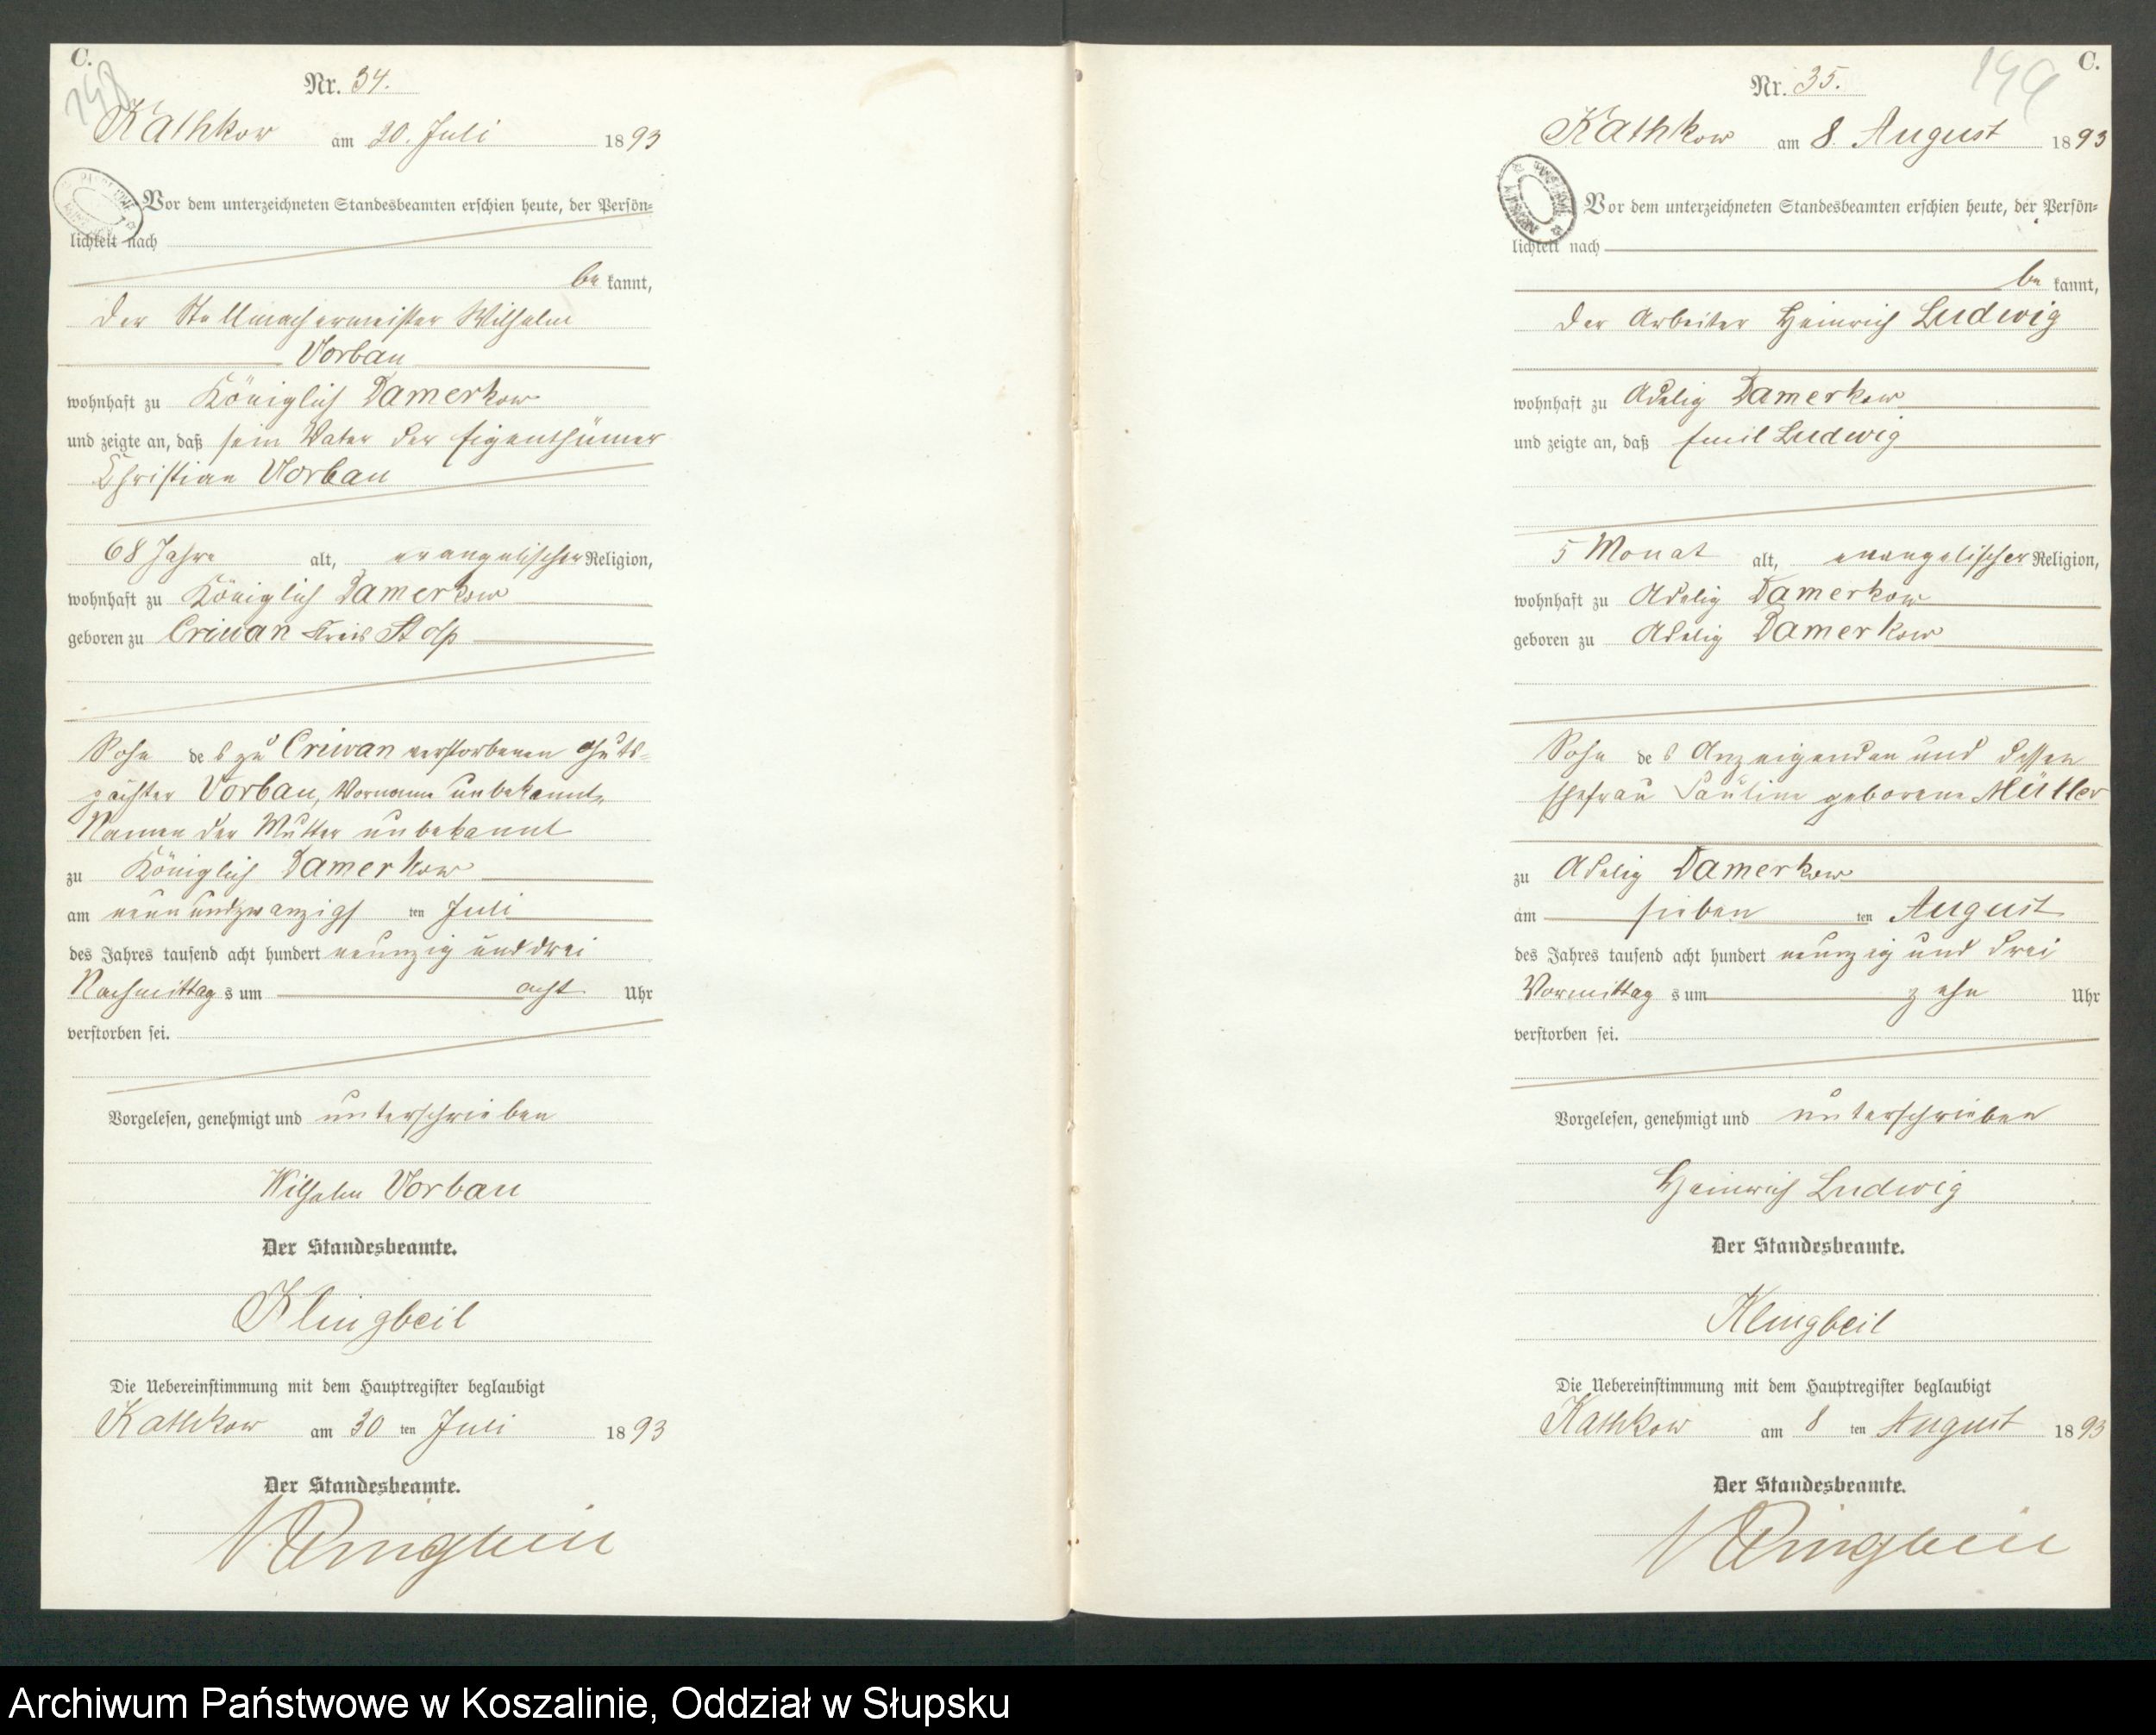 C.
148
Nr. 34.
Kathkow am 30. Juli 1893
Vor dem unterzeichneten Standesbeamten erschien heute, der Persön-
lichkeit nach
be kannt,
der Stellmachermeister Wilhelm
Vorbau
wohnhaft zu Königlich Damerkow
und zeigte an, daß sein Vater der Eigenthümer
Christian Vorbau
68 Jahre alt, evangelischer Religion,
wohnhaft zu Königlich Damerkow
geboren zu Criwan Kreis Stolp
Sohn des zu Criwan verstorbenen Guts-
pächter Vorbau, Vorname unbekannt,
Namen der Mutter unbekannt
zu Königlich Damerkow
am neunundzwanzigsten Juli
des Jahres tausend acht hundert neunzig und drei
Nachmittags um acht Uhr
verstorben sei.
Vorgelesen, genehmigt und unterschrieben
Wilhelm Vorbau
Der Standesbeamte.
Klingbeil
Die Uebereinstimmung mit dem Hauptregister beglaubigt
Kathkow am 30 ten Juli 1893
Der Standesbeamte.
Klingbeil
C.
149
Nr. 35.
Kathkow am 8. August 1893
Vor dem unterzeichneten Standesbeamten erschien heute, der Persön-
lichkeit nach
be kannt,
der Arbeiter Heinrich Ludwig
wohnhaft zu Adelig Damerkow
und zeigte an, daß Emil Ludwig
5 Monat alt, evangelischer Religion,
wohnhaft zu Adelig Damerkow
geboren zu Adelig Damerkow
Sohn des Anzeigenden und dessen
Ehefrau Pauline geborene Müller
zu Adelig Damerkow
am sieben ten August
des Jahres tausend acht hundert neunzig und drei
Vormittags um zehn Uhr
verstorben sei.
Vorgelesen, genehmigt und unterschrieben
Heinrich Ludwig
Der Standesbeamte.
Klingbeil
Die Uebereinstimmung mit dem Hauptregister beglaubigt
Kathkow am 8 ten August 1893
Der Standesbeamte.
Klingbeil
Archiwum Państwowe w Koszalinie, Oddział w Słupsku